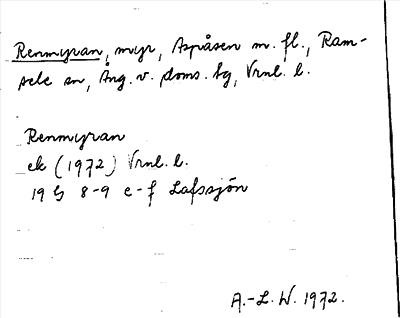 Renmyran, myr, Aspåsen m. fl., Ram-
sele sn, Ång. v. doms. tg, Vrnl. l.
Renmyran
ek (1972) Vrnl. l.
19 G 8-9 e-f Lafssjön
A.-L. W. 1972.